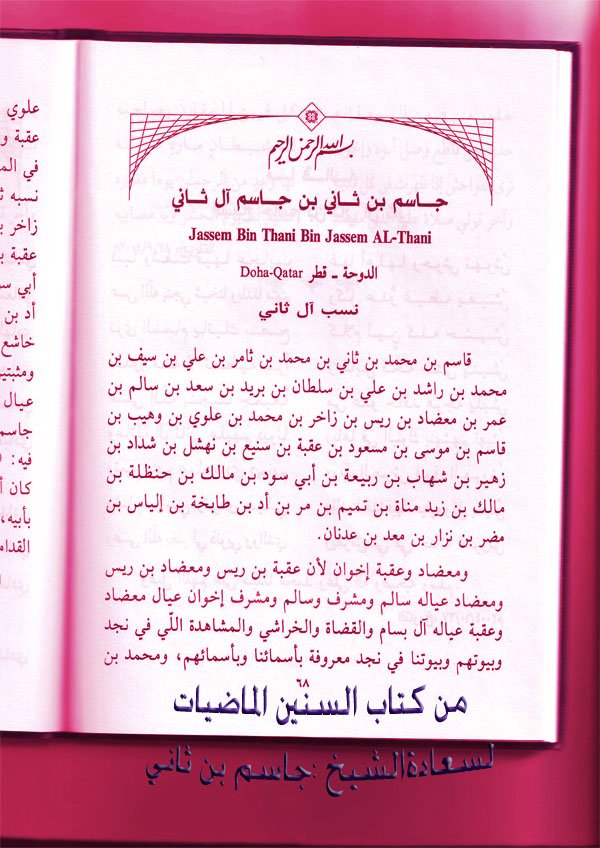 بسم الله الرحمن الرحيم
جاسم بن ثاني بن جاسم آل ثاني
Jassem Bin Thani Bin Jassem AL-Thani
الدوحة ـ قطر Doha-Qatar
نسب آل ثاني
قاسم بن محمد بن ثاني بن محمد بن ثامر بن علي بن سيف بن
محمد بن راشد بن علي بن سلطان بن بريد بن سعد بن سالم بن
عمر بن معضاد بن ريس بن زاخر بن محمد بن علوي بن وهيب بن
قاسم بن موسى بن مسعود بن عقبة بن سنيع بن نهشل بن شداد بن
زهير بن شهاب بن ربيعة بن أبي سود بن مالك بن حنظلة بن
مالك بن زيد مناة بن تميم بن مر بن أد بن طابخة بن إلياس بن
مضر بن نزار بن معد بن عدنان.
ومعضاد وعقبة إخوان لأن عقبة بن ريس ومعضاد بن ريس
ومعضاد عياله سالم ومشرف وسالم ومشرف إخوان عيال معضاد
وعقبة عياله آل بسام والقضاة والخراشي والمشاهدة اللّي في نجد
وبيوتهم وبيوتنا في نجد معروفة بأسمائنا وبأسمائهم، ومحمد بن
٦٨
من كتاب السنين الماضيات
لسعادة الشيخ :جاسم بن ثاني
علوي
عقبة و
في الم
نسبه
زاخر ب
عقبة ب
أبي سو
أد بن
خاشع
ومثبتي
عيال
جاسم
فيه:
كان أ
بأبيه،
القدام